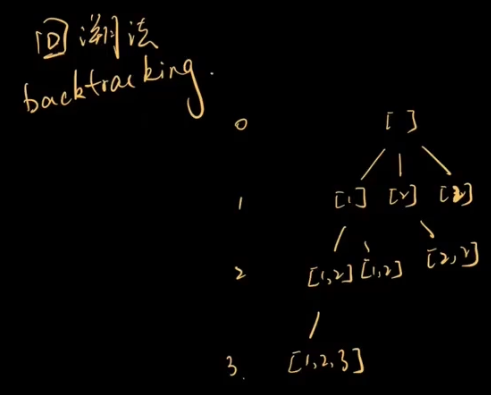 回溯法
backtracking.
0 []
1 [1] [2] [2]
2 [1,2] [1,2] [2,2]
3. [1,2,3]